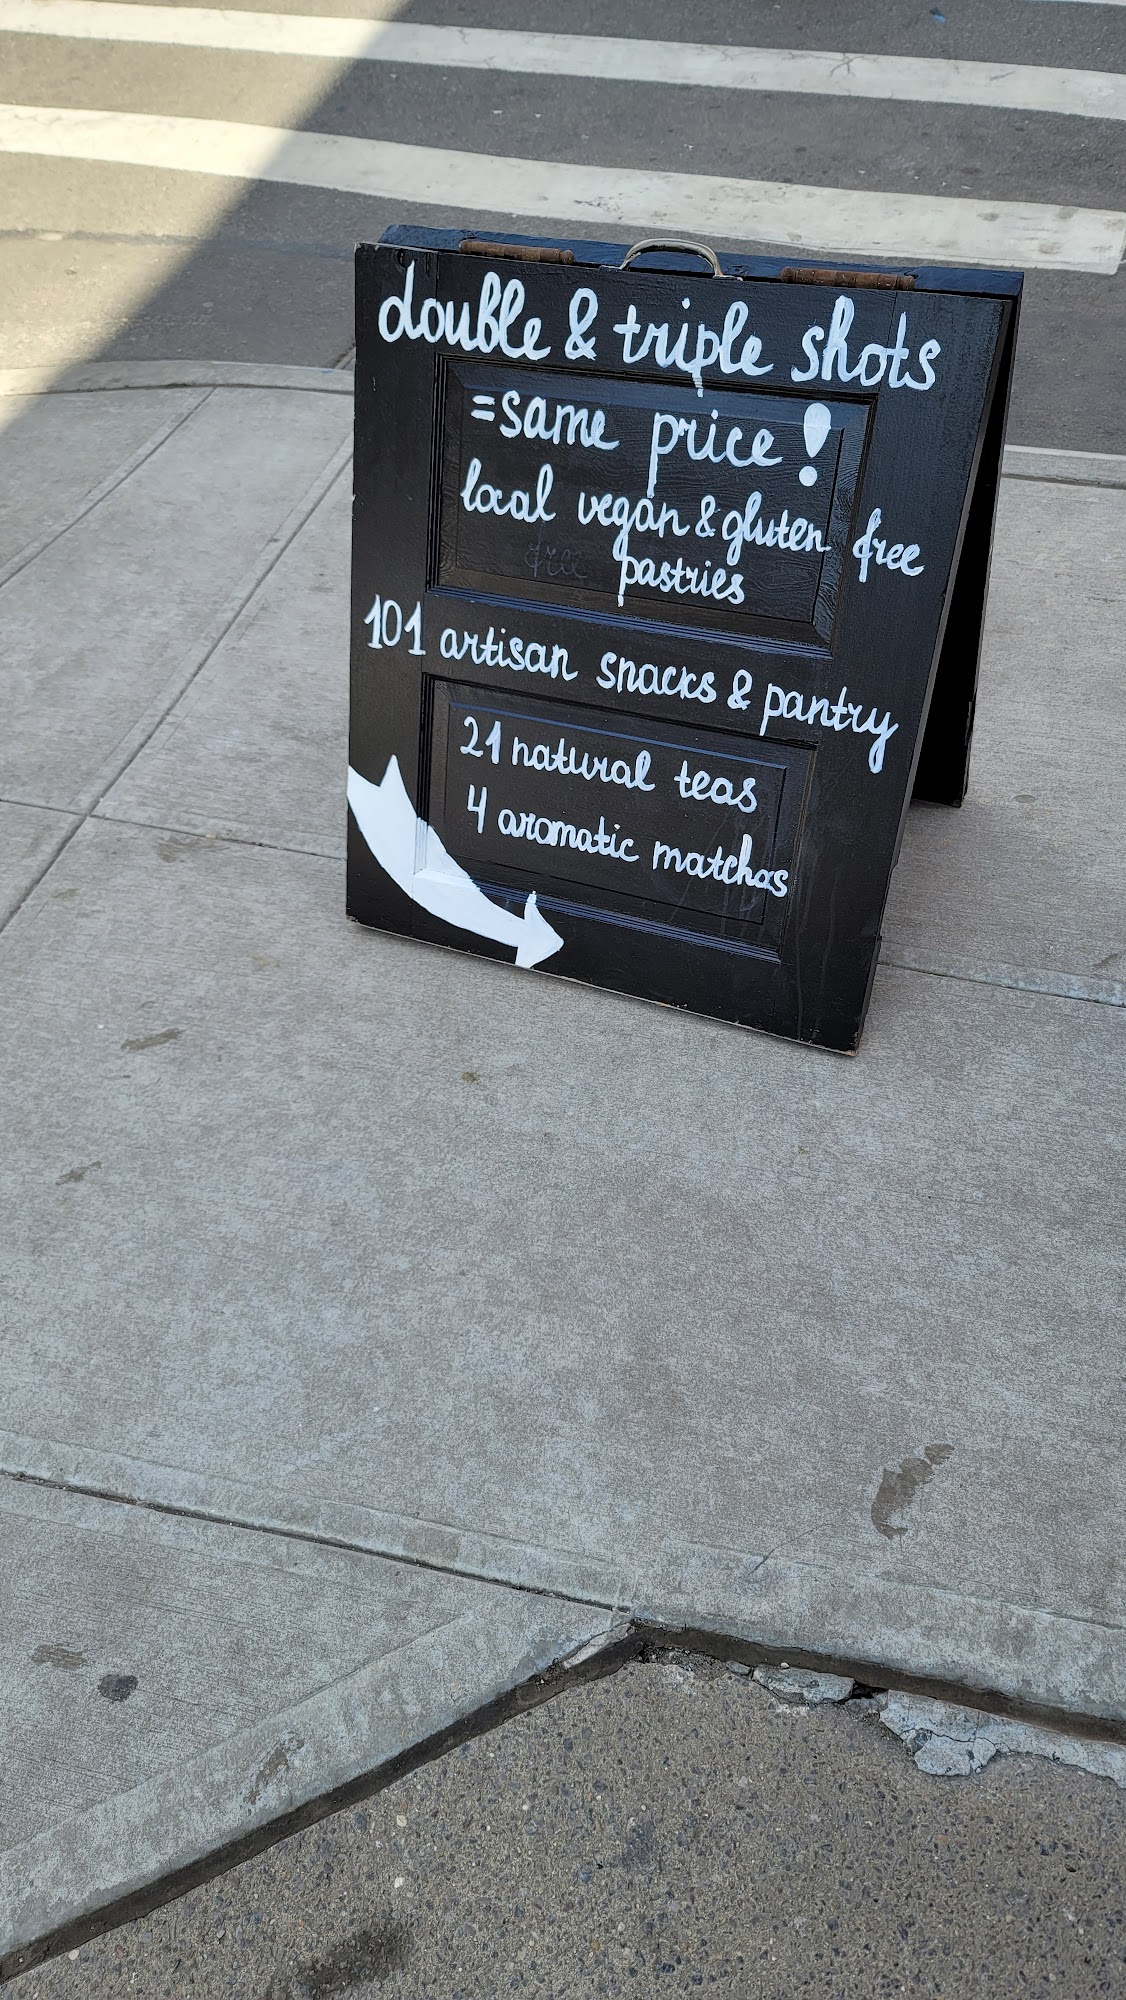 double & triple shots
=same price!
local vegan & gluten free
free pastries
101 artisan snacks & pantry
21 natural teas
4 aromatic matchas